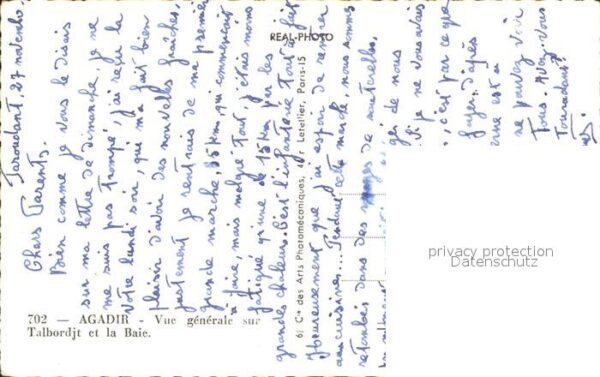 Taroudant, 27 novembre.
Chers Parents.
Bien comme je vous le disais
sur ma lettre de dimanche. je ne
me suis pas trompé, j'ai reçu la
votre lundi soir, qui m'a fait bien
plaisir d'avoir des nouvelles fraîches,
justement je rentrais de ma première
grande marche, 35 km, qui commençait
à faire, mais malgré tout j'étais moins
fatigué qu'une de 15 km par les
grandes chaleurs. C'est l'infanterie tout à fait
Heureusement que j'ai espoir de rentrer
aux cuisines... Pendant cette marche, nous sommes
retombés dans des nuages de sauterelles,
de nous
si je ne vous avais
, c'est par ce que
d'après
une est à
ne pouvez voir
Tous. Avez-vous
REAL-PHOTO
6) Cie des Arts Photomécaniques, 44, r Letellier, Paris-15
702 — AGADIR - Vue générale sur
Talbordjt et la Baie.
privacy protection
Datenschutz